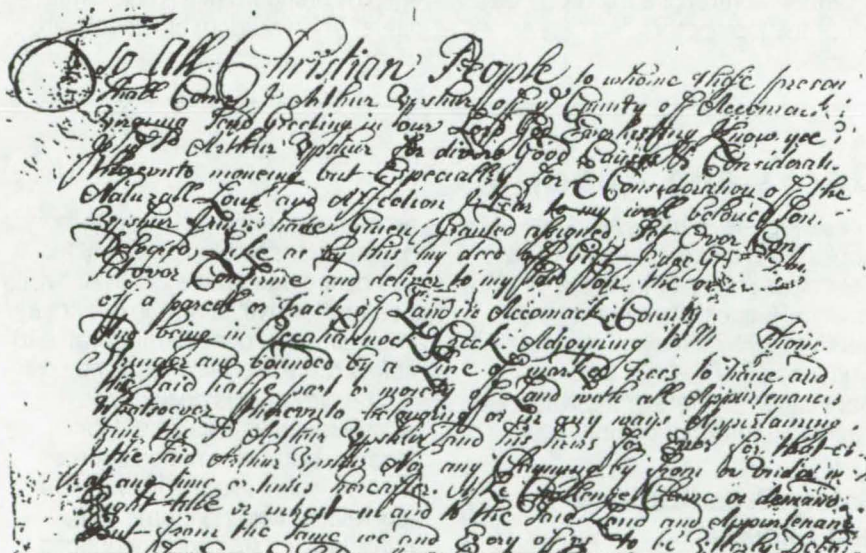 To All Christian People to whome these presen
shall Come, I Arthur Upshur off ye County of Accomack
Virginia Send Greeting in our Lord God Everlasting Know yee
yt I ye sd Arthur Upshur for divers Good Causes & Considerati
thereunto moveing but Especially for ye Consideration of the
Naturall Love and Affection I bear to my well beloved Son
Upshur Junr have Given Granted assigned Set Over
Like as by this my deed off Gift I doe Give
Set over Confirme and deliver to my said Son the
off a parcell or track off Land in Accomack County
And being in Occahannock Creek Adjoyning to Mr Thom
Stringer and bounded by a Line of marked trees to have and
the said halfe part or moyety of Land with all Appurtenances
Whatsoever thereunto belonging or in any ways Appertaining
him the sd Arthur Upshur and his heirs for Ever for that
I the said Arthur Upshur Nor any Clayming by from or under
at any time or times hereafter Challenge Claime or demand
Right title or interest in and to the said Land and Appurtenan
But from the same we and Every of us to be